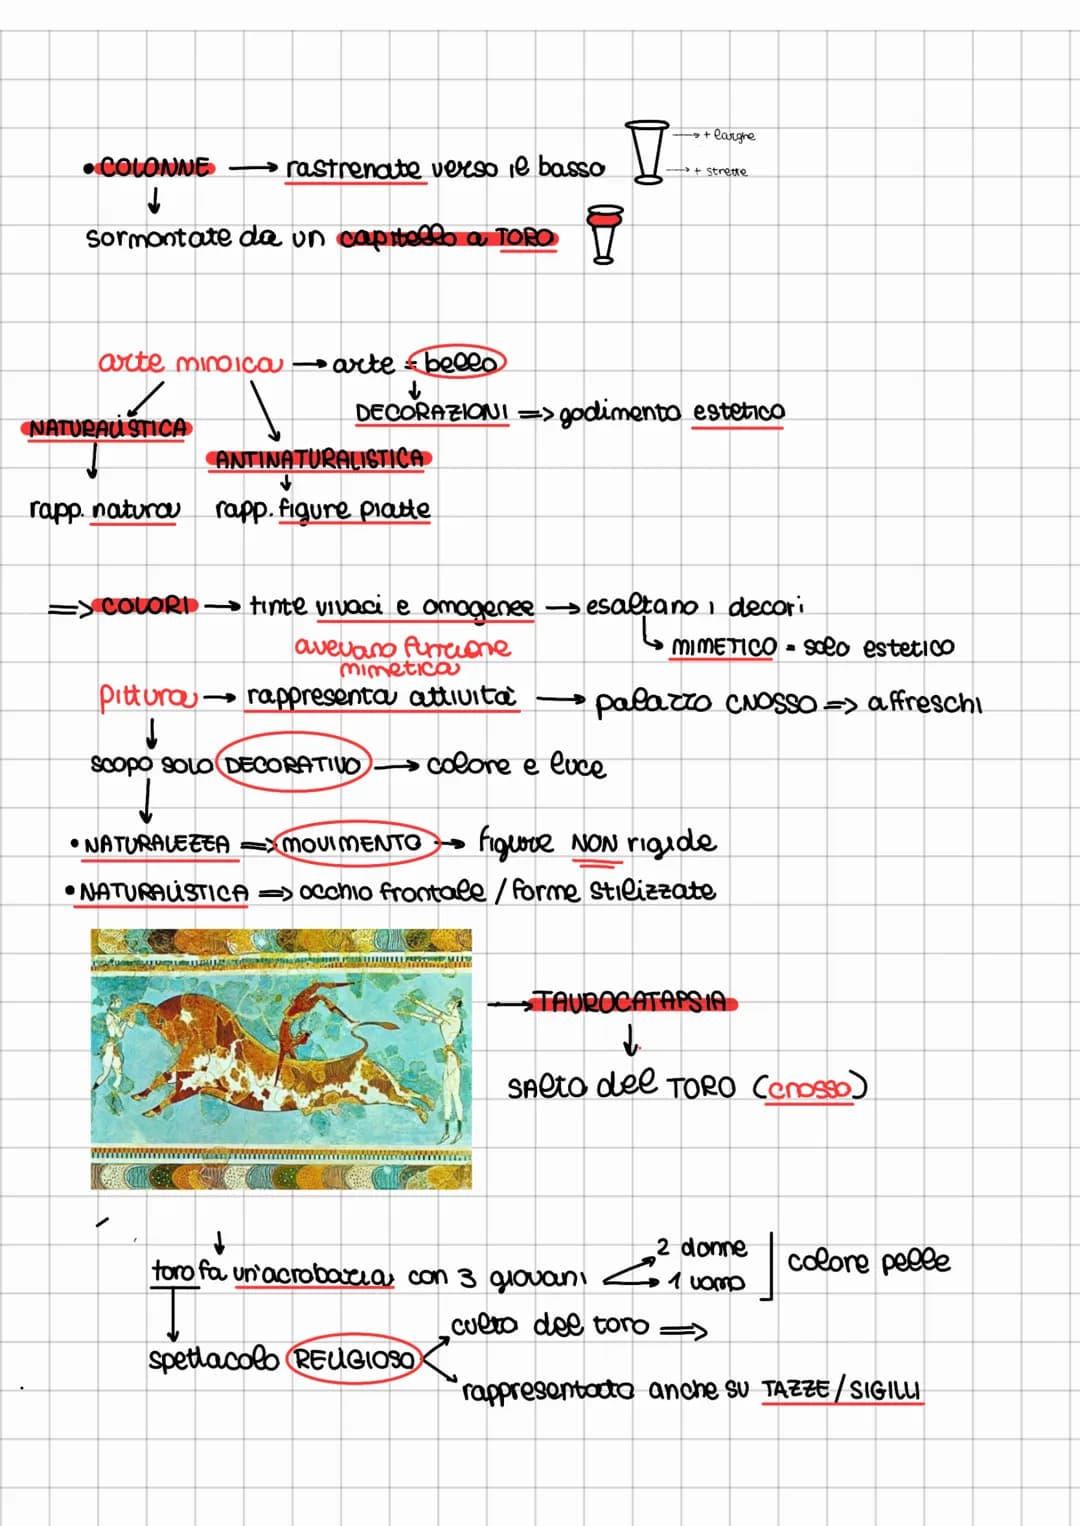 → + larghe
• COLONNE → rastremate verso il basso
→ + strette
↓
sormontate da un capitello a TORO
arte minoica → arte = bello
↓
DECORAZIONI => godimento estetico
NATURALISTICA
ANTINATURALISTICA
↓
rapp. natura rapp. figure piatte
=> COLORI → tinte vivaci e omogenee → esaltano i decori
avevano funzione
mimetica
↳ MIMETICO = solo estetico
pittura → rappresenta attività → palazzo CNOSSO => affreschi
↓
SCOPO SOLO DECORATIVO → colore e luce
↓
• NATURALEZZA => MOVIMENTO → figure NON rigide
• NATURALISTICA => occhio frontale / forme stilizzate
→ TAUROCATAPSIA
↓
SAlto del TORO (cnosso)
↓
toro fa un'acrobazia con 3 giovani
2 donne
1 uomo
colore pelle
↓
spettacolo RELIGIOSO
culto del toro =>
rappresentata anche su TAZZE / SIGILLI